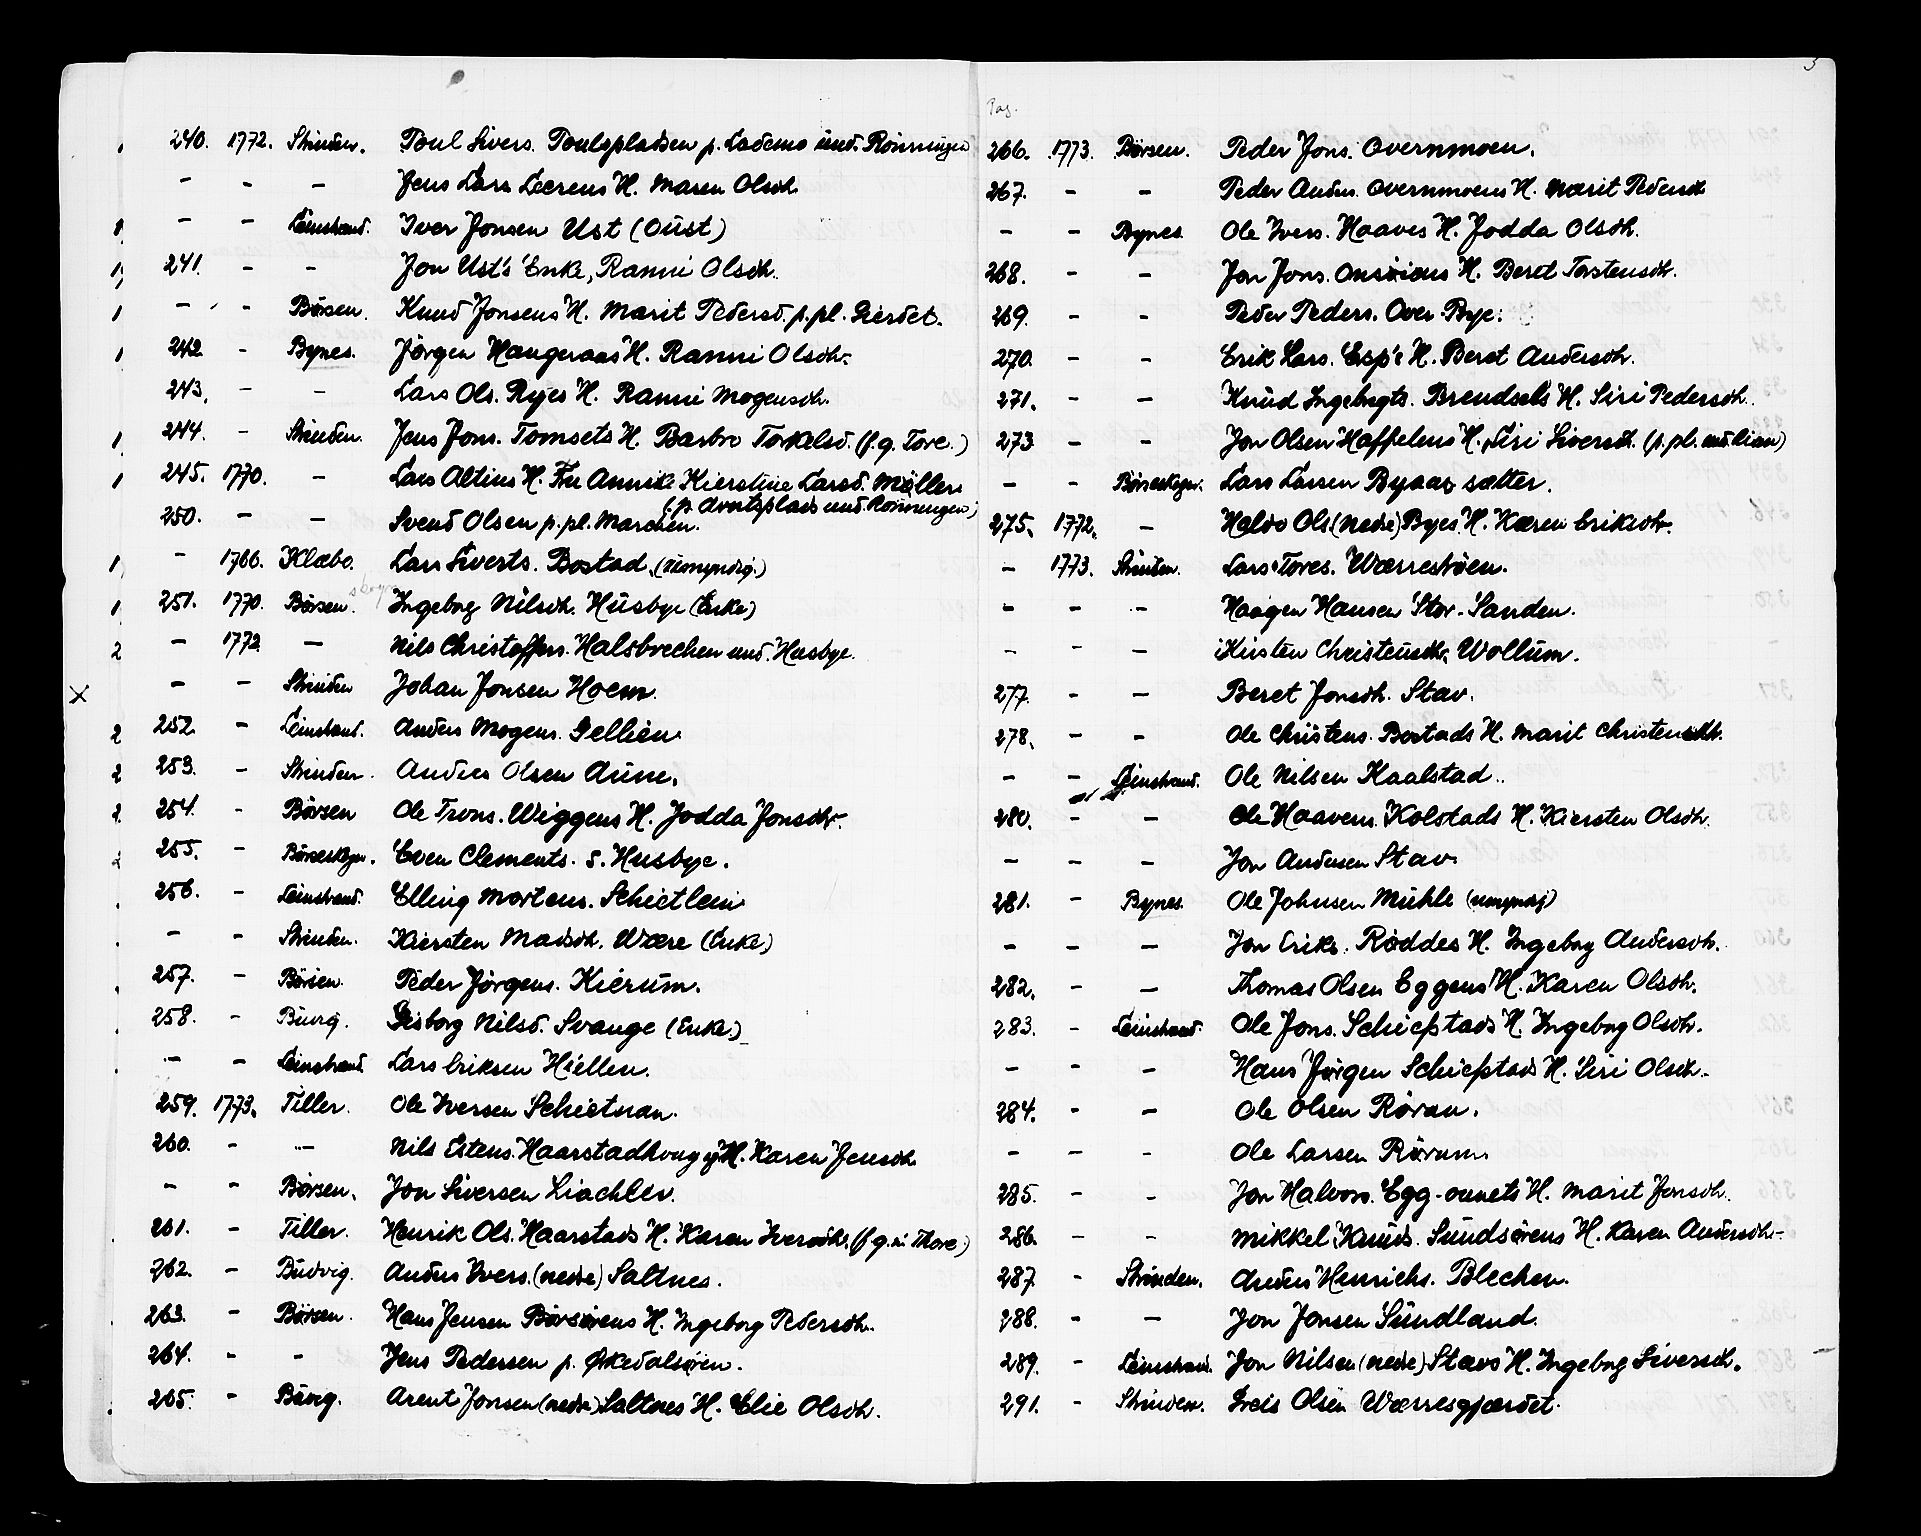 240. 1772. Strinden. Poul Sivers. Poulspladsen p. Lademo und. Rönningen
- - - Jens Lars Leerens H. Maren Olsdh.
- - Leinstrand. Iver Jonsen Ust (Oust)
241. - - Jon Ust's Enke, Ranni Olsdh.
- - Börsen. Knud Jonsens H. Marit Pedersd. p. pl. Gierdet.
242. - Bynes. Jörgen Haugeraas H. Ranni Olsdh.
243. - - Lars Ols. Ryes H. Ranni Mogensdh.
244. - Strinden. Jens Jons. Tomsets H. Barbro Torkelsd. (f. g. Tore.)
245. 1770. - Lars Altins H. Fru Annike Kierstine Larsd. Möller
(: p. Arntsplads und. Rönningen)
250. - - Svend Olsen p. pl. Marchen.
- 1766. Klæbo. Lars Siverts. Bostad. (umyndig.)
251. 1770. Börsen. Ingebog Nilsdh. Husbye (Enke)
- 1772. - Nils Christoffers. Halsbrechen und. Husbye.
- - Strinden Johan Jonsen Hoem.
252. - Leinstrand. Anders Mogens. Gellien
253. - Strinden. Anders Olsen Aune.
254. - Börsen Ole Trons. Wiggens H. Jodda Jonsdh.
255. - Börseskogn. Even Clements. s. Husbye.
256. - Leinstrand. Elling Mortens. Schietlein
- - Strinden. Kiersten Madsdh. Være (Enke)
257. - Börsen. Peder Jörgens. Kierum.
258. - Buvig. Gisborg Nilsd. Svange (Enke)
- - Leinstrand. Lars Eriksen Hiellen.
259. 1773. Tiller. Ole Iversen Schietnan.
260. - - Nils Estens. Haarstadhoug H. Karen Jensdh.
- - Börsen. Jon Siversen Liachlev.
261. - Tiller. Henrik Ols. Haarstads H. Karen Iversdh. (f. g. m. Thore)
262. - Budvig. Anders Ivers. (nedre) Saltnes.
263. - Börsen. Hans Jensen Børsørens H. Ingeborg Pedersdh.
264. - - Jens Pedersen p. Ørkedalsøren.
265. - Buvig. Arent Jonsen (nedre) Saltnes H. Elie Olsdh.
3
Pag.
266. 1773. Börsen. Peder Jons. Overnmoen.
267. - - Peder Anders. Overnmoens H. Marit Pedersdh
- - Bynes. Ole Ivers. Haaves H. Jodda Olsdh.
268. - - Jon Jons. Onsøiens H. Beret Torstensdh.
269. - - Peder Peders. Over-Bye.
270. - - Erik Lars. Esp's H. Beret Andersdh.
271. - - Knud Ingebrigts. Brendsels H. Siri Pedersdh.
273 - - Jon Olsen Haffelens H. Siri Siversdh. (p. pl. und Lian)
- - Börseskogn. Lars Larsen Byaas sætter.
275. 1772. - Haldo Ols (nedre) Byes H. Karen Eriksdh.
- 1773. Strinden. Lars Tores. Wærrestrøen.
- - - Haagen Hansen Stor-Sanden.
- - - Kirsten Christensdh. Wollum.
277. - - Beret Jonsdh. Stav.
278. - - Ole Christens. Bostads H. Marit Christensdh.
- - Leinstrand. Ole Nilsen Kaalstad.
280. - - Ole Haavens. Kolstads H. Kiersten Olsdh.
- - - Jon Andersen Stav.
281. - Bynes. Ole Johnsen Mühle (umyndig)
- - - Jon Eriks. Røddes H. Ingebog Andersdh.
282. - - Thomas Olsen Eggens H. Karen Olsdh.
283. - Leinstrand. Ole Jons. Schiefstads H. Ingebog Olsdh.
- - - Hans Jørgen Schiefstads H. Siri Olsdh.
284. - - Ole Olsen Røran.
- - - Ole Larsen Rørum.
285. - - Jon Halvors. Egg-ounets H. Marit Jonsdh.
286. - - Mikkel Knuds. Sundsørens H. Karen Andersdh.
287. - Strinden. Anders Henrichs. Blechen.
288. - - Jon Jonsen Sundland.
289. - Leinstrand. Jon Nilsen (nedre) Stavs H. Ingebog Siversdh.
291. - Strinden. Greis Olsen Wærresgjærdet.